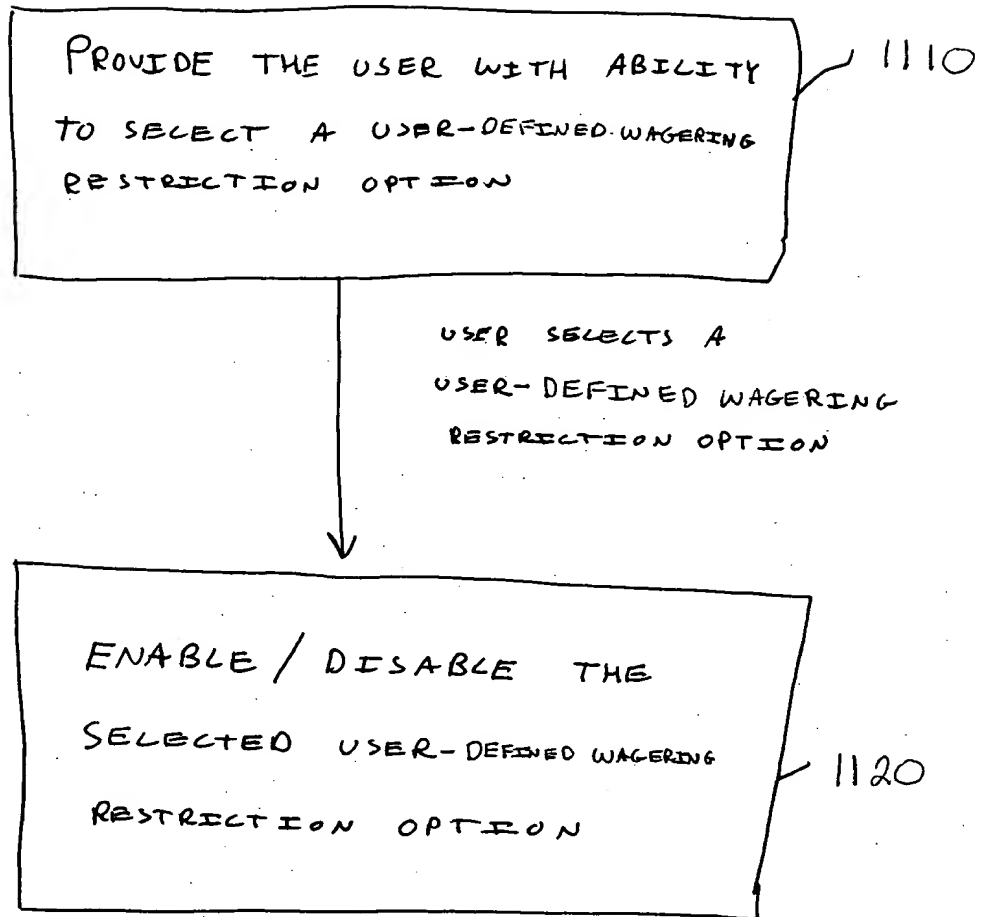 PROVIDE THE USER WITH ABILITY
TO SELECT A USER-DEFINED WAGERING
RESTRICTION OPTION
1110
USER SELECTS A
USER-DEFINED WAGERING
RESTRICTION OPTION
ENABLE / DISABLE THE
SELECTED USER-DEFINED WAGERING
RESTRICTION OPTION
1120